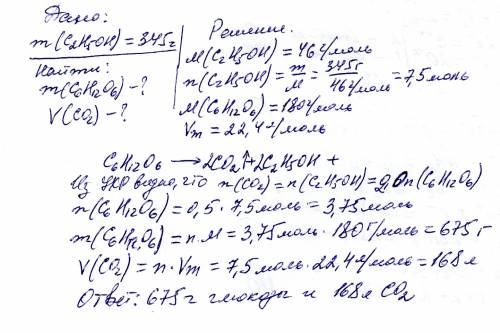 Дано:
m(C2H5OH)=345г
Найти:
m(C6H12O6)-?
V(CO2)-?
Решение.
M(C2H5OH)=46г/моль
n(C2H5OH)=m/M=345г/46г/моль=7,5моль
M(C6H12O6)=180г/моль
Vm=22,4л/моль
C6H12O6→2CO2↑+2C2H5OH+
Из УХР видно, что n(CO2)=n(C2H5OH)=2,0n(C6H12O6)
n(C6H12O6)=0,5·7,5моль=3,75моль
m(C6H12O6)=n·M=3,75моль·180г/моль=675г
V(CO2)=n·Vm=7,5моль·22,4л/моль=168л
Ответ: 675г глюкозы и 168л CO2